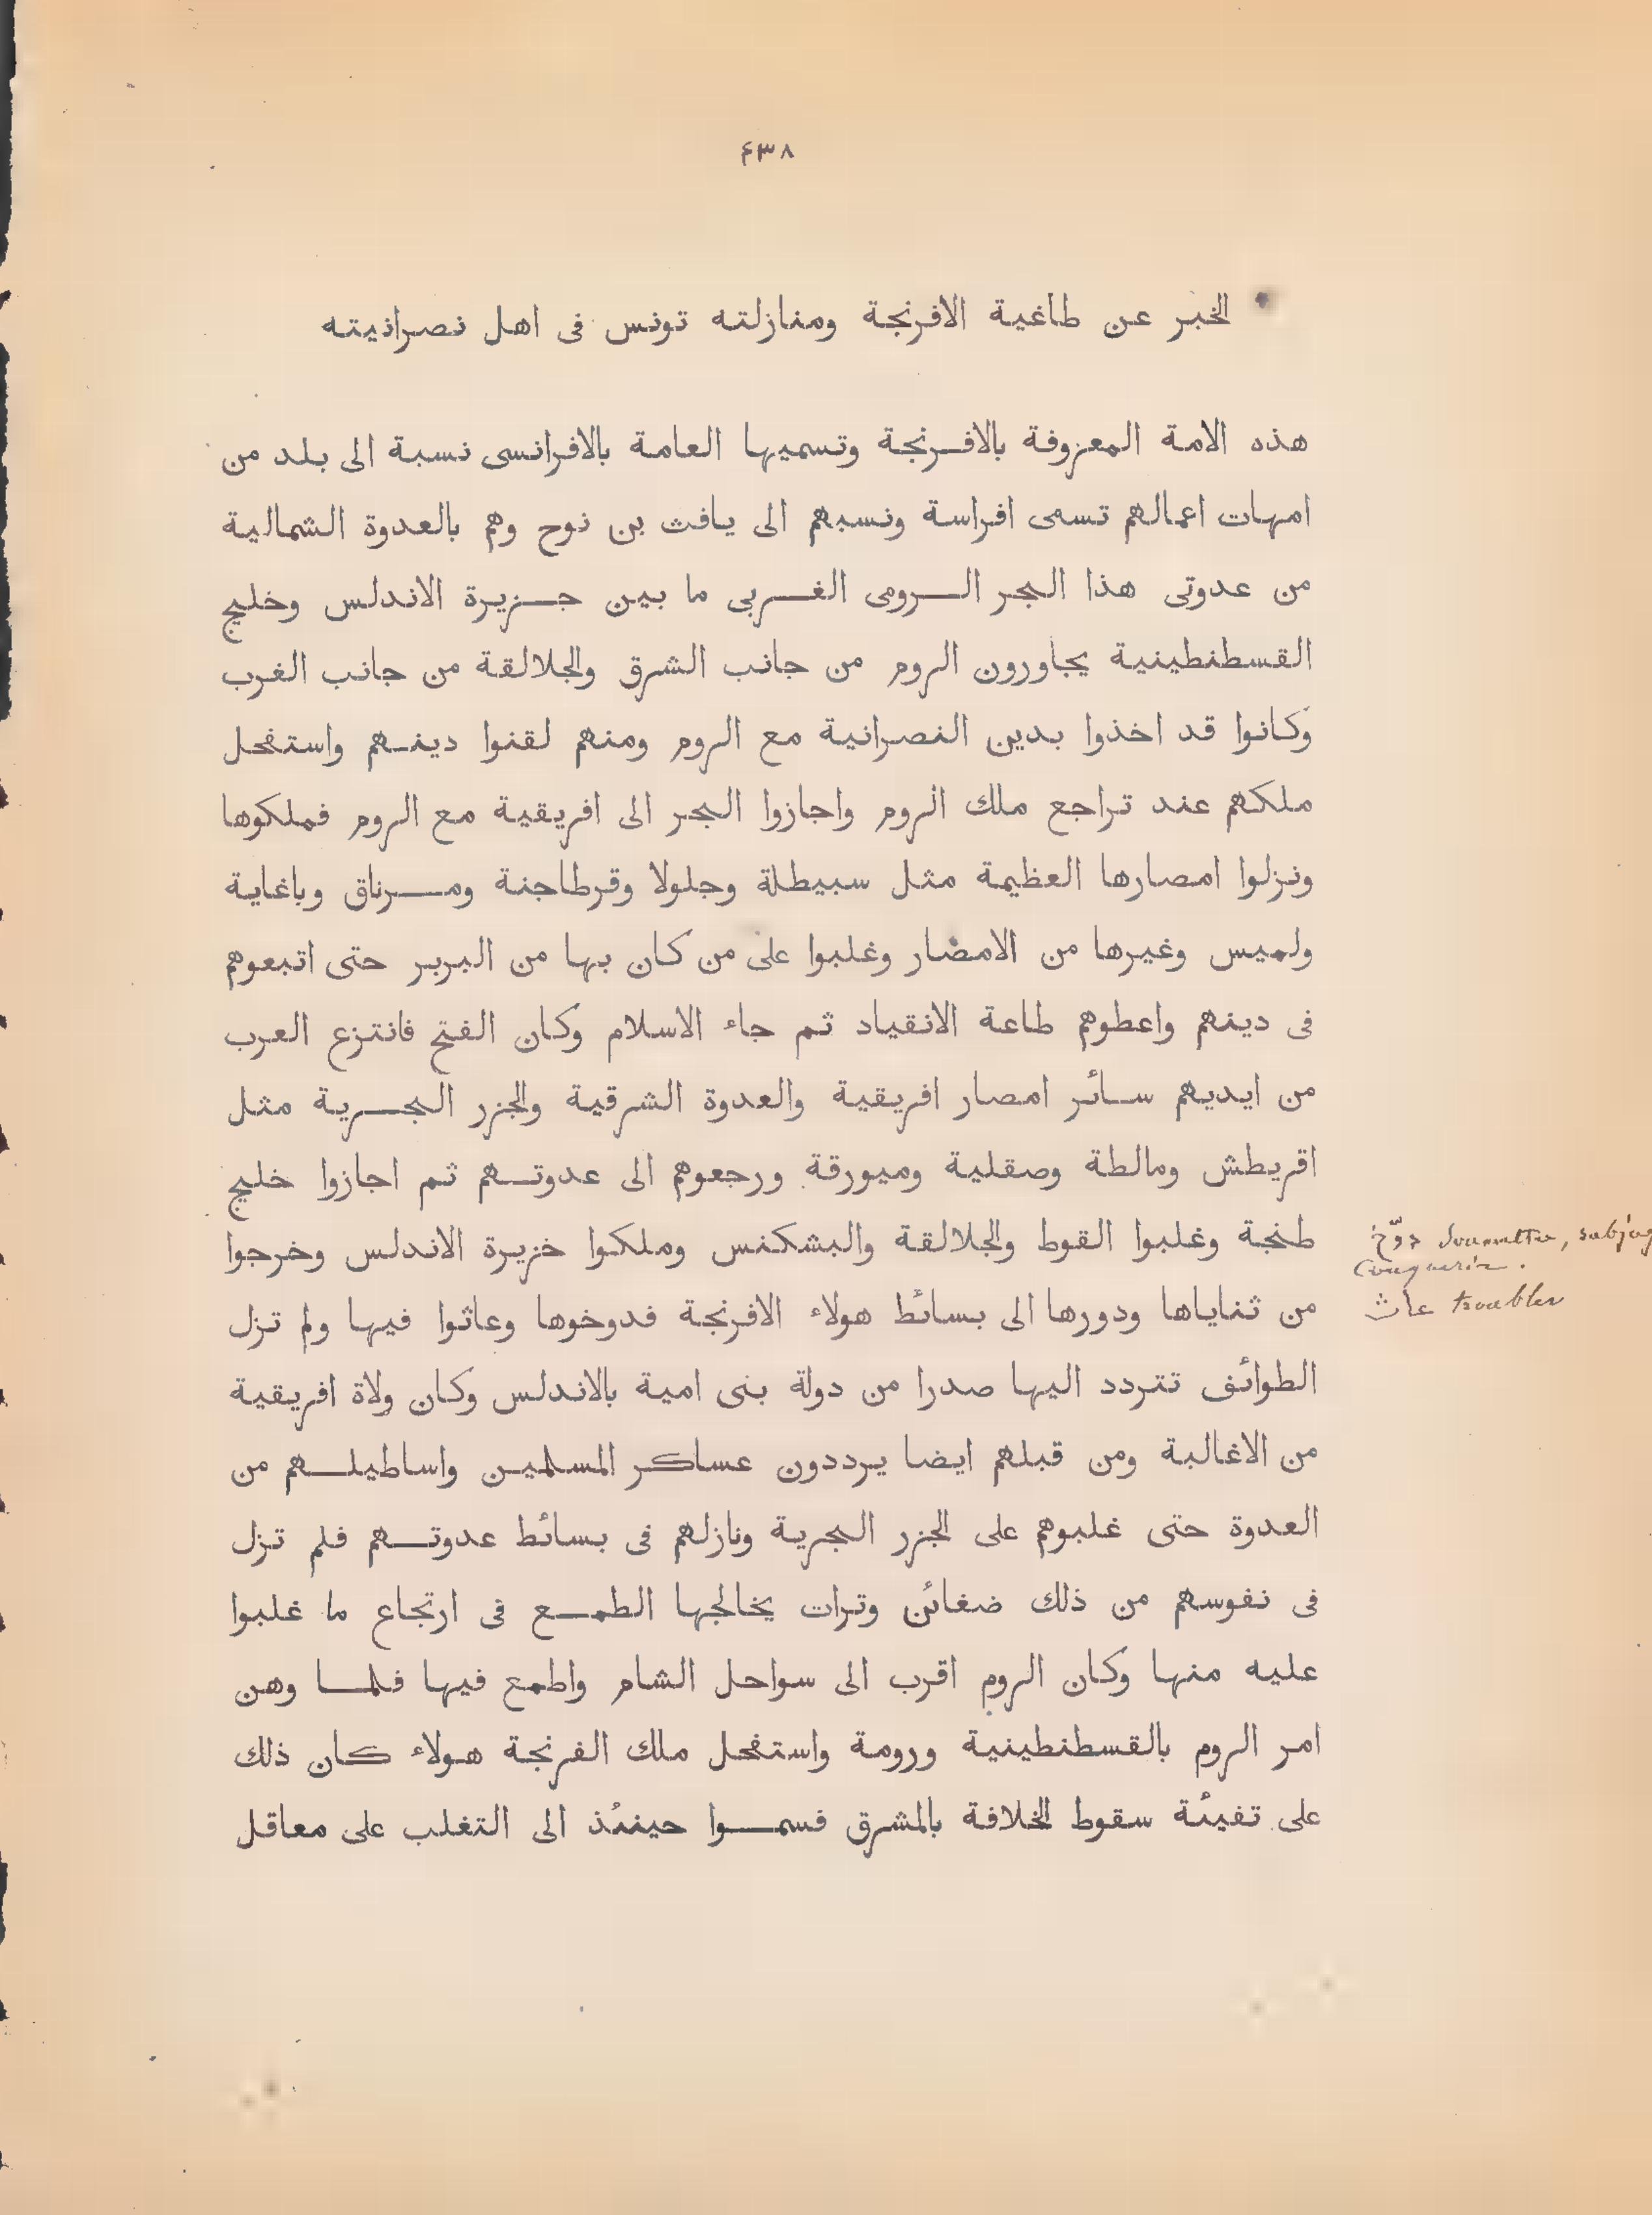 ۴٣٨
الخبر عن طاغية الافرنجة ومنازلته تونس فى اهل نصرانيته
هذه الامة المعزوفة بالافرنجة وتسميها العامة بالافرانسى نسبة الى بلد من
امهات اعمالهم تسمى افراسة ونسبهم الى يافث بن نوح وهم بالعدوة الشمالية
من عدوتى هذا البحر الرومى الغربى ما بين جزيرة الاندلس وخليج
القسطنطينية يجاورون الروم من جانب الشرق والجلالقة من جانب الغرب
وكانوا قد اخذوا بدين النصرانية مع الروم ومنهم لقنوا دينهم واستفحل
ملكهم عند تراجع ملك الروم واجازوا البحر الى افريقية مع الروم فملكوها
ونزلوا امصارها العظيمة مثل سبيطلة وجلولا وقرطاجنة ومرناق وباغاية
ولميس وغيرها من الامصار وغلبوا على من كان بها من البربر حتى اتبعوهم
فى دينهم واعطوهم طاعة الانقياد ثم جاء الاسلام وكان الفتح فانتزع العرب
من ايديهم سائر امصار افريقية والعدوة الشرقية والجزر البحرية مثل
اقريطش ومالطة وصقلية وميورقة ورجعوهم الى عدوتهم ثم اجازوا خليج
طنجة وغلبوا القوط والجلالقة والبشكنس وملكوا خزيرة الاندلس وخرجوا
من ثناياها ودورها الى بسائط هولاء الافرنجة فدوخوها وعاثوا فيها ولم تزل
الطوائف تتردد اليها صدرا من دولة بنى امية بالاندلس وكان ولاة افريقية
من الاغالبة ومن قبلهم ايضا يرددون عساكر المسلمين واساطيلهم من
العدوة حتى غلبوهم على الجزر البحرية ونازلهم فى بسائط عدوتهم فلم تزل
فى نفوسهم من ذلك ضغائن وترات يخالجها الطمع فى ارتجاع ما غلبوا
عليه منها وكان الروم اقرب الى سواحل الشام واطمع فيها فلما وهن
امر الروم بالقسطنطينية ورومة واستفحل ملك الفرنجة هولاء كان ذلك
على تفيئة سقوط الخلافة بالمشرق فسموا حينئذ الى التغلب على معاقل
دوّخ soumettre, subjug
conquérir.
عاث troubler